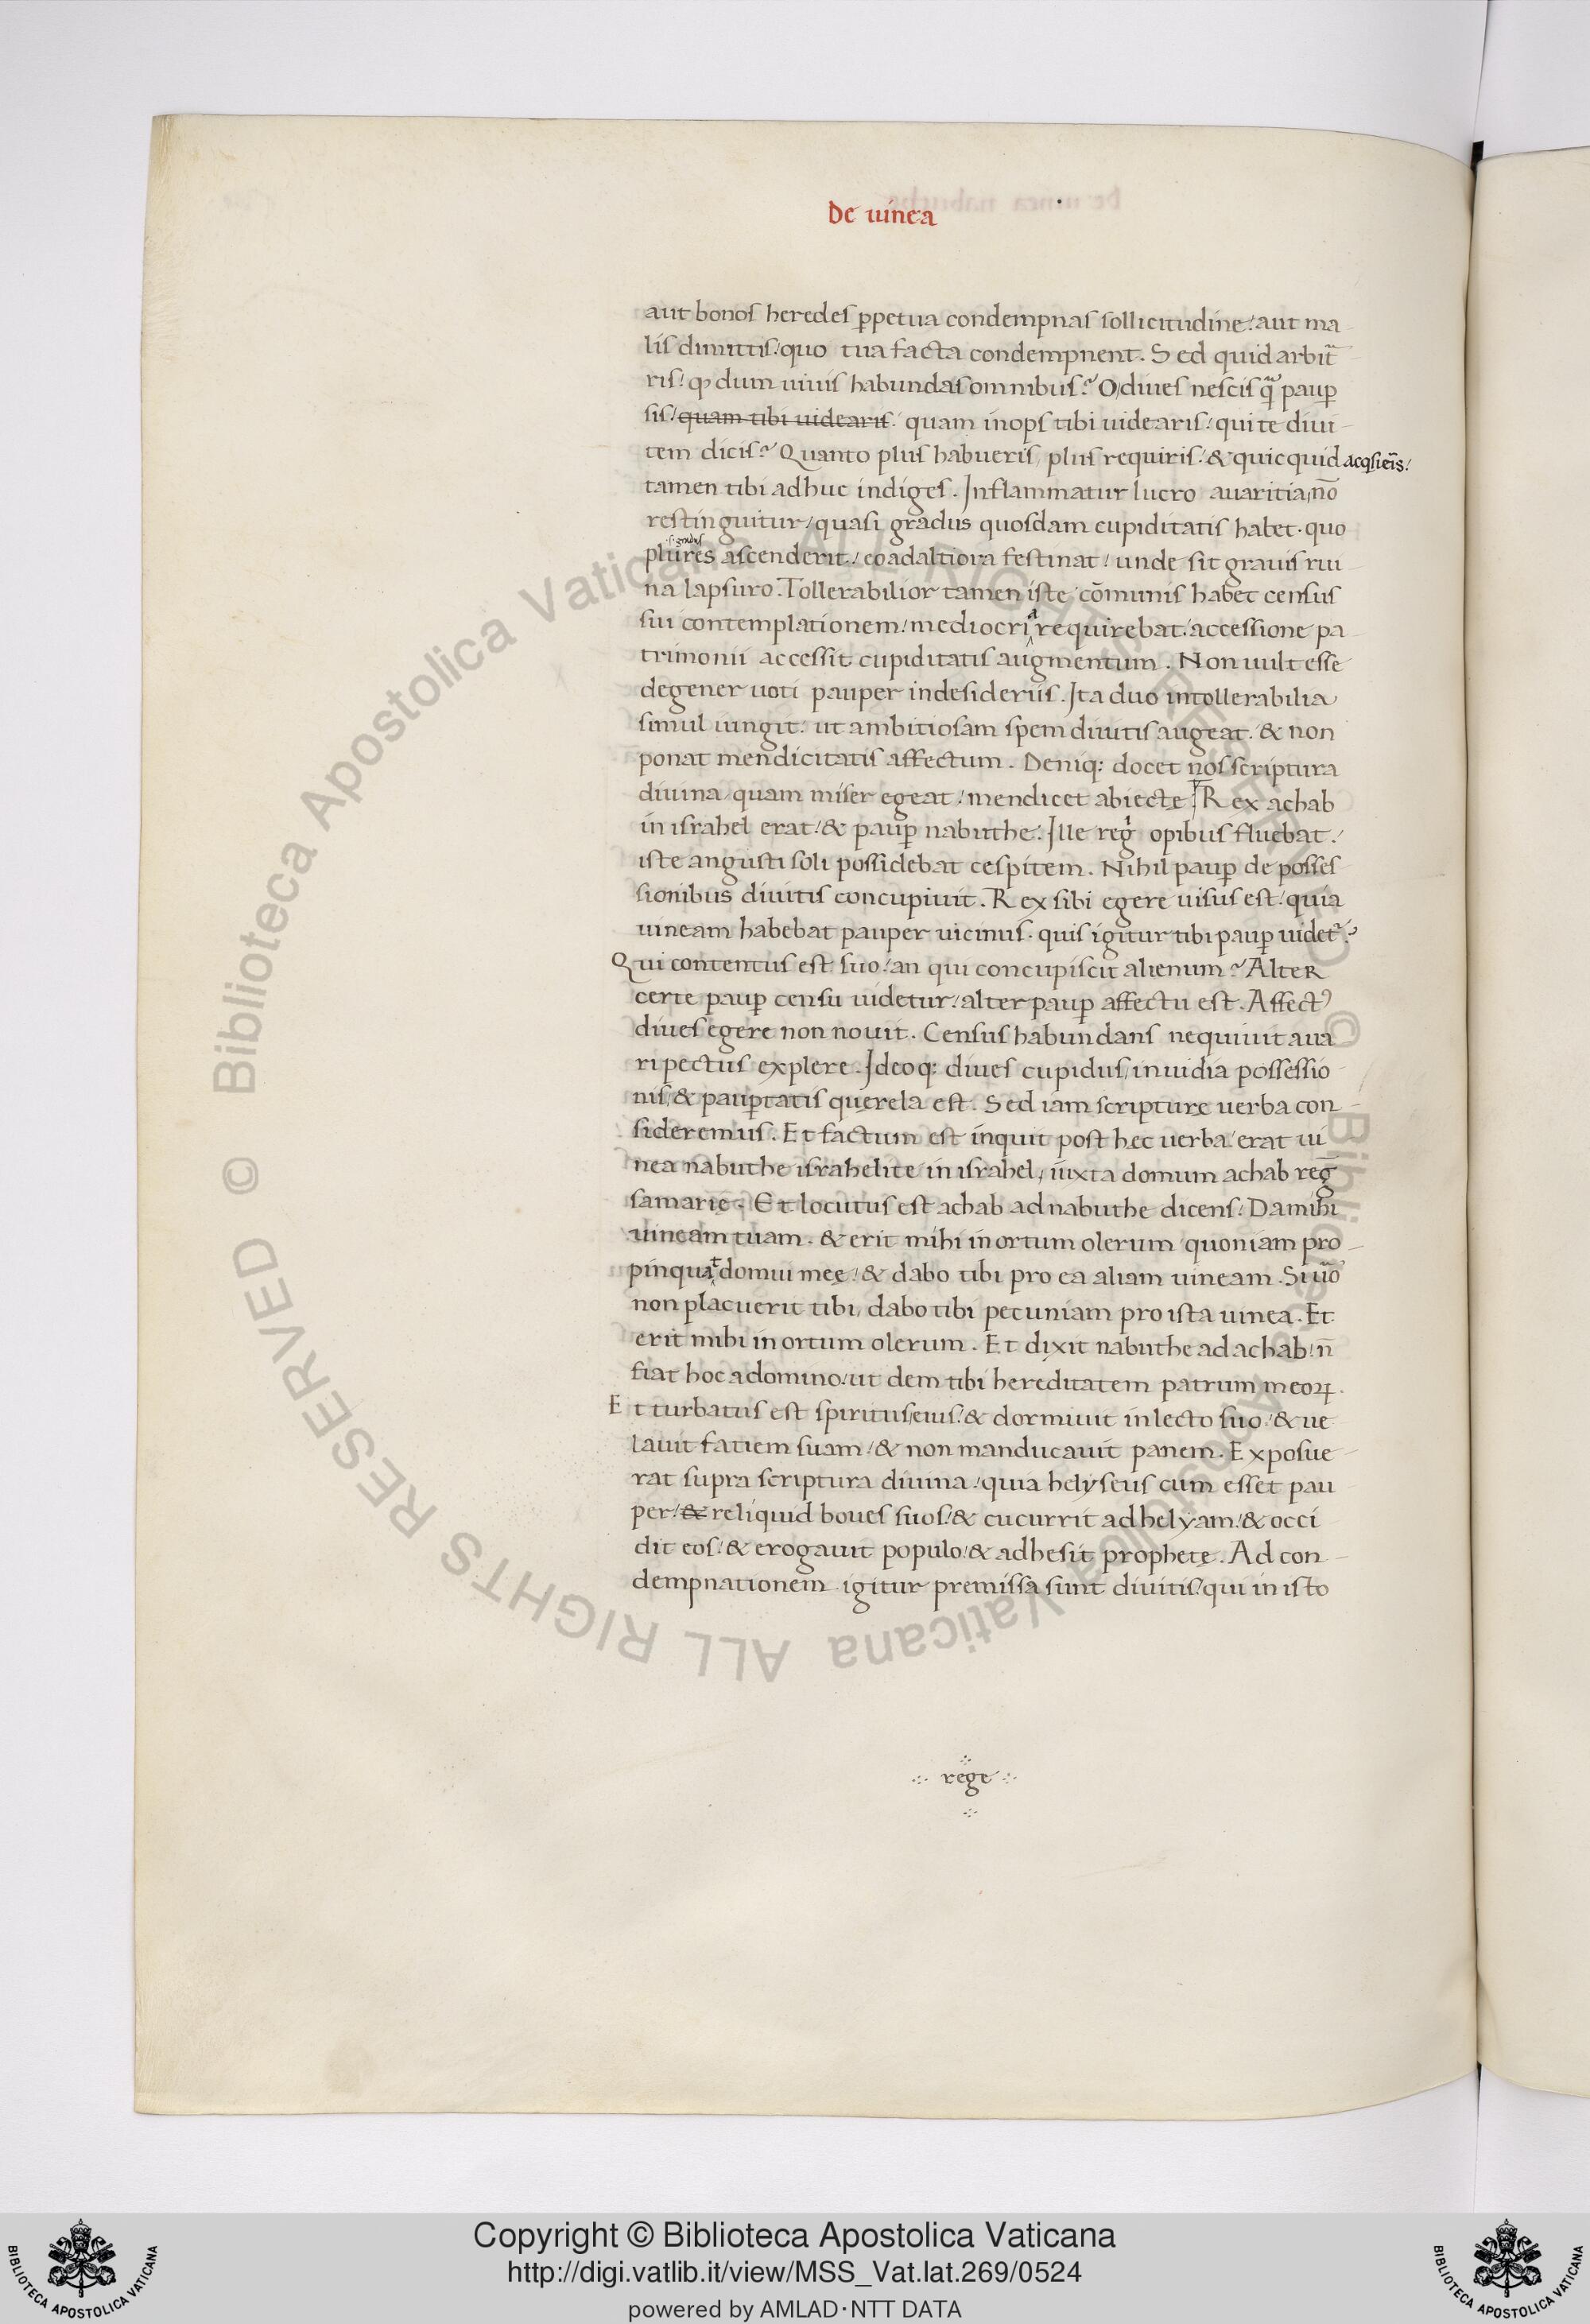 De uinea
aut bonos heredes ꝑpetua condempnas sollicitudine! aut ma
lis dimittis! quo tua facta condempnent. Sed quid arbit̄
ris! ꝙ dum uiuis habundas omnibus? O diues nescis q̄ pauꝑ
sis! quam tibi uidearis. quam inops tibi uidearis! qui te diui-
tem dicis? Quanto plus habueris, plus requiris! & quicquid acq̇sieīs!
tamen tibi adhuc indiges. Inflammatur lucro auaritia, nō
restinguitur! quasi gradus quosdam cupiditatis habet. quo
.s. gradus
plures ascenderit! eo ad altiora festinat! unde sit grauis rui
na lapsuro. Tollerabilior tamen iste cōmunis habet census
sui contemplationem! mediocria requirebat! accessione pa
trimonii accessit cupiditatis augmentum. Non uult esse
degener uoti pauper in desideriis. Ita duo intollerabilia
simul iungit. ut ambitiosam spem diuitis augeat. & non
ponat mendicitatis affectum. Deniq: docet nos scriptura
diuina quam miser egeat! mendicet abiecte. Rex achab
in israhel erat! & pauꝑ nabuthe. Ille reg̍ opibus fluebat!
iste angusti soli possidebat cespitem. Nihil pauꝑ de posses
sionibus diuitis concupiuit. Rex sibi egere uisus est! quia
uineam habebat pauper uicinus. quis igitur tibi pauꝑ uidet᷑?
Qui contentus est suo! an qui concupiscit alienum? Alter
certe pauꝑ censu uidetur! alter pauꝑ affectu est. Affectꝰ
diues egere non nouit. Census habundans nequiuit aua
ri pectus explere. Ideoq: diues cupidus, inuidia possessio
nis, & pauꝑtatis querela est. Sed iam scripturę uerba con-
sideremus. Et factum est inquit post hec uerba! erat ui
nea nabuthe israhelite in israhel, iuxta domum achab reḡ
samarię. Et locutus est achab ad nabuthe dicens! Da mihi
uineam tuam. & erit mihi in ortum olerum quoniam pro-
pinquat domui meę! & dabo tibi pro ea aliam uineam. Si ūo
non placuerit tibi, dabo tibi pecuniam pro ista uinea. Et
erit mihi in ortum olerum. Et dixit nabuthe ad achab! n̄
fiat hoc a domino! ut dem tibi hereditatem patrum meoꝝ.
Et turbatus est spiritus eius! & dormiuit in lecto suo! & ue
lauit fatiem suam! & non manducauit panem. Exposue-
rat supra scriptura diuina! quia helyseus cum esset pau
per! & reliquid boues suos! & cucurrit ad helyam! & occi
dit eos! & erogauit populo! & adhesit prophetę. Ad con-
dempnationem igitur premissa sunt diuitis! qui in isto
rege
Copyright © Biblioteca Apostolica Vaticana
http://digi.vatlib.it/view/MSS_Vat.lat.269/0524
powered by AMLAD·NTT DATA
BIBLIOTECA APOSTOLICA VATICANA
BIBLIOTECA APOSTOLICA VATICANA
© Biblioteca Apostolica Vaticana ALL RIGHTS RESERVED © Biblioteca Apostolica Vaticana ALL RIGHTS RESERVED